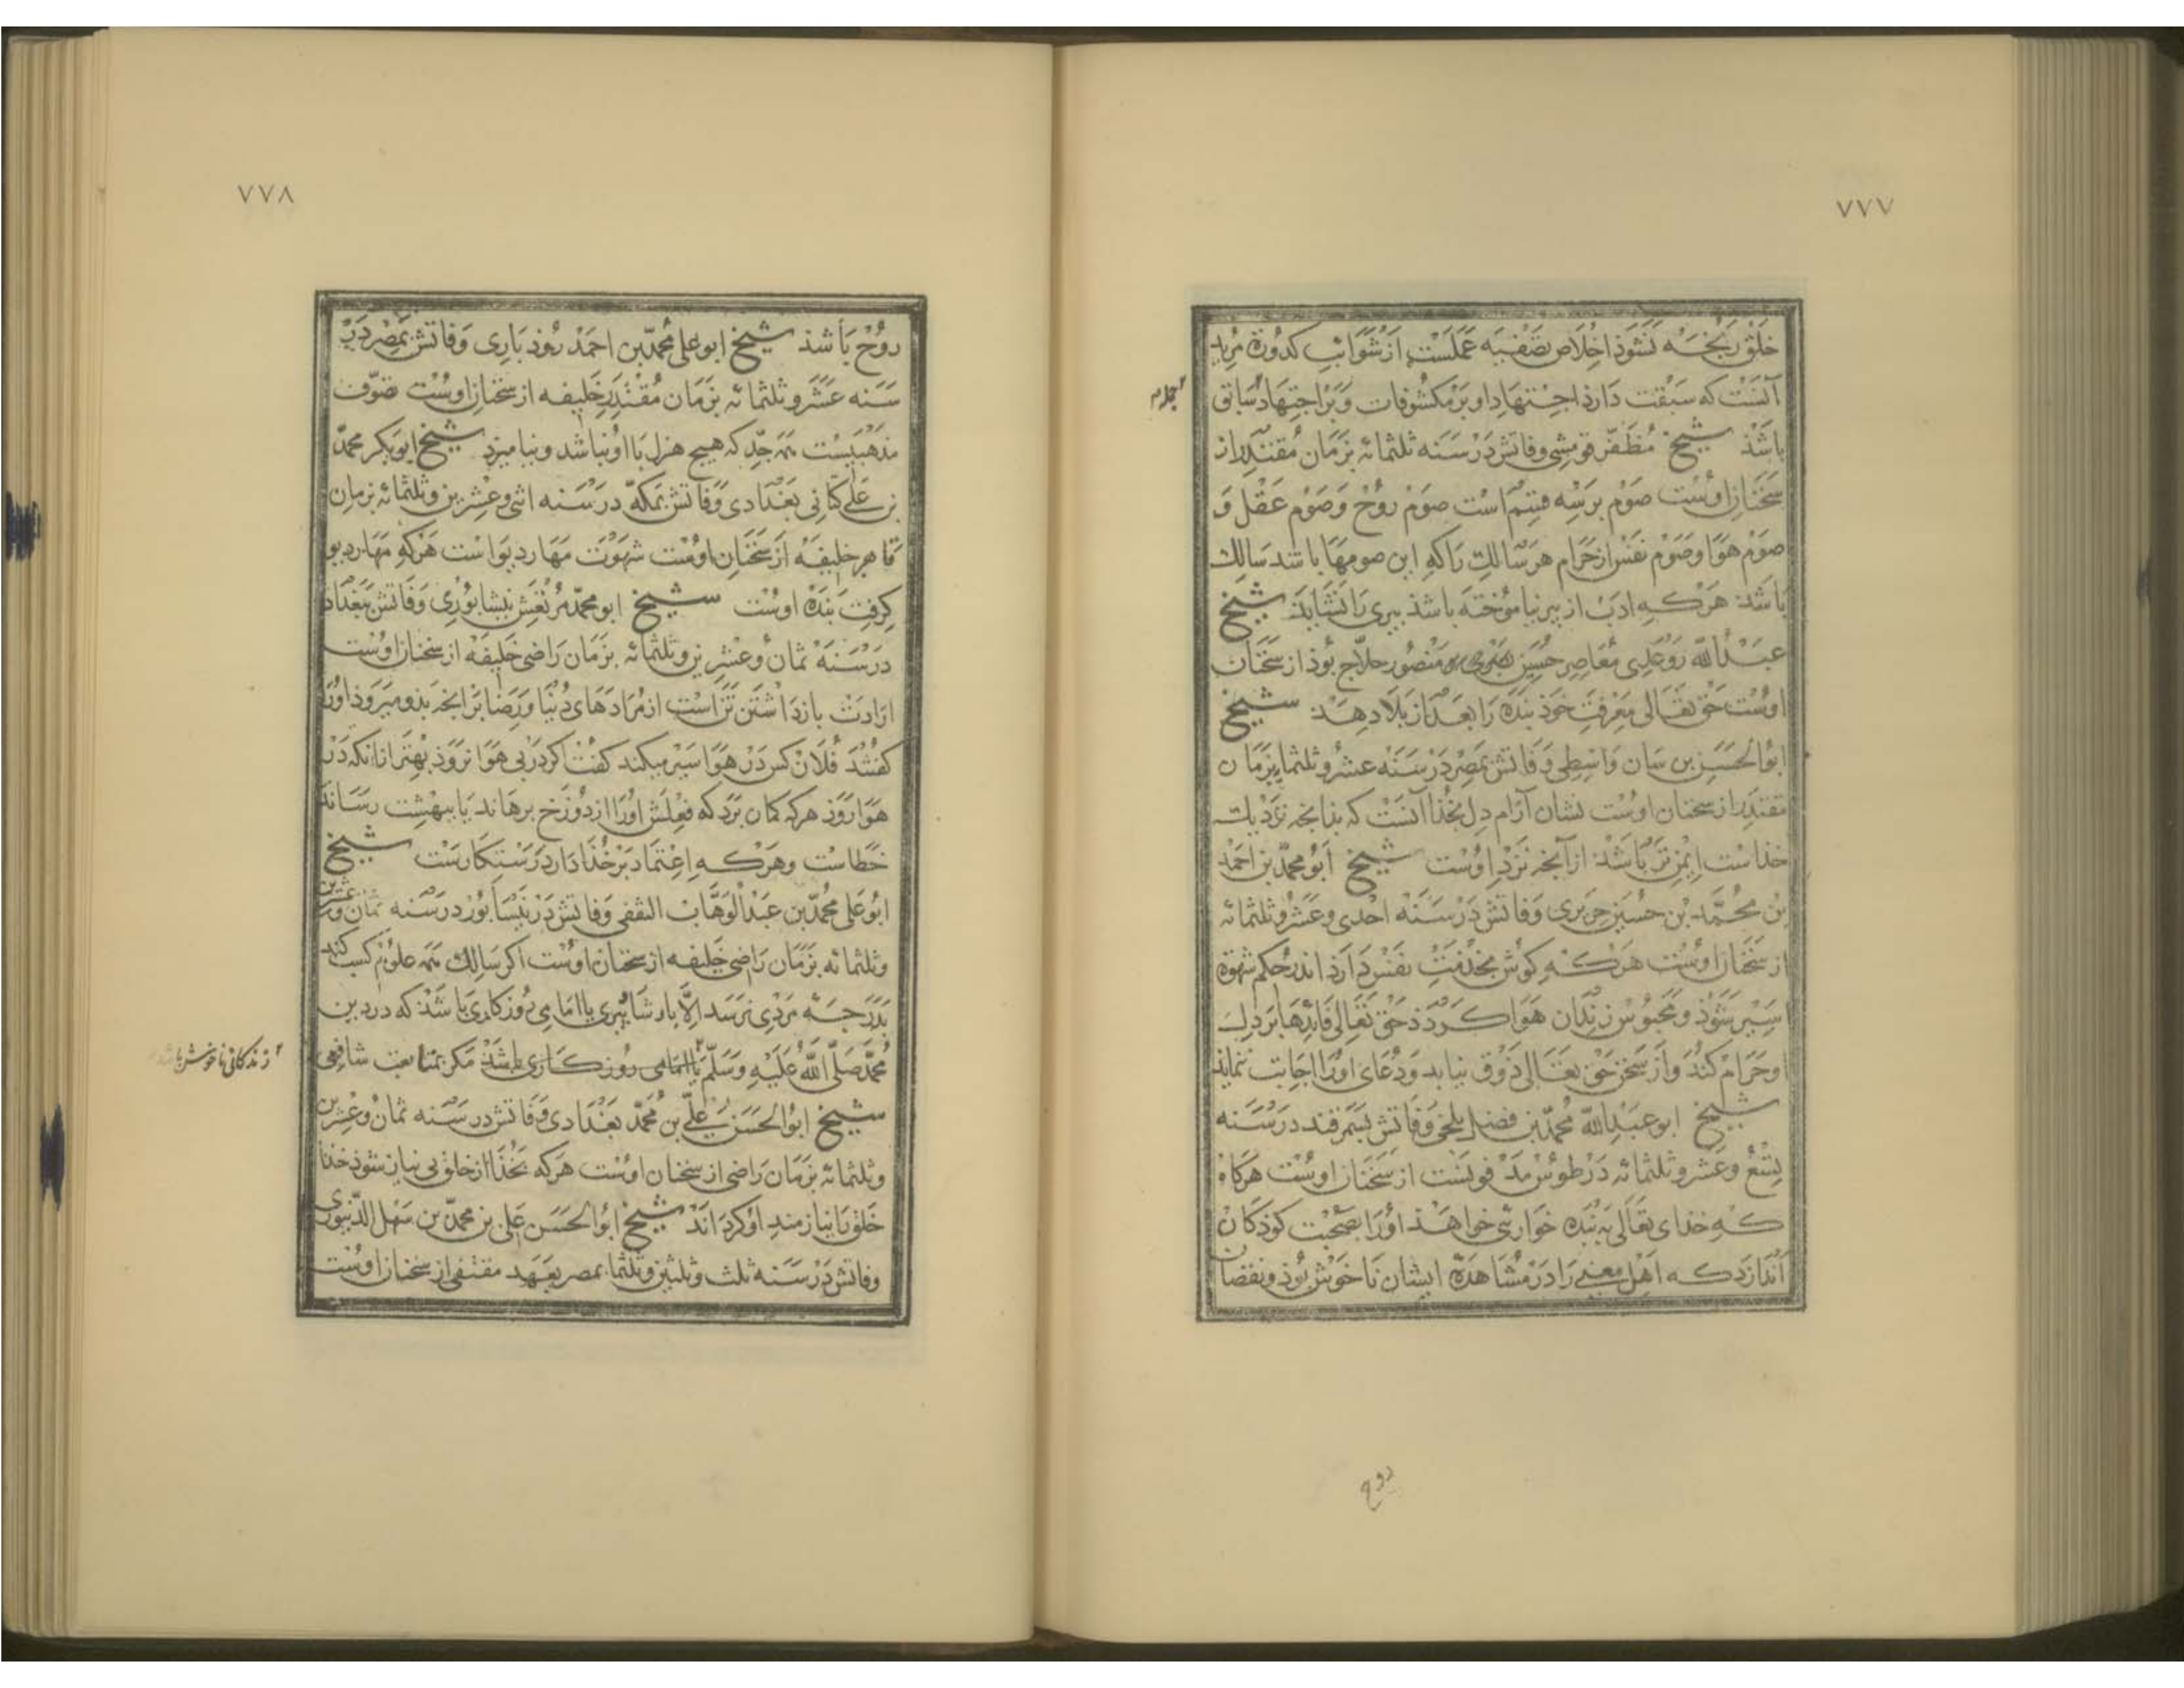 ٧٧٧
خلق رنجه نشوذ اخلاص تصفیه عملست از شوائب کدورة مرید
آنست که سبقت دارذ اجتهاد او بر مکشوفات و بر اجتهاد سابق
باشذ شیخ مظفر قرمیسی وفاتش در سنه ثلثمائه بزمان مقتدر از
سخنان اوست صوم بر سه قسم است صوم روح و صوم عقل و
صوم هوا و صوم نفس از حرام هر سالک را که این صومها باشد سالک
باشد هر که ادب از پیر نیاموخته باشذ پیری را نشاید شیخ
عبدالله روغدی معاصر حسین منصور حلاج بوذ از سخنان
اوست حق تعالی معرفت خوذ بنده را بعد از بلا دهد شیخ
ابوالحسین بن سان واسطی وفاتش بمصر در سنه عشر و ثلثمایه بزمان
مقتدر از سخنان اوست نشان آرام دل بخذا آنست که بذانچه نزدیک
خذاست ایمن تر باشذ از آنچه نزد اوست شیخ ابو محمد بن احمد
بن محمد بن حسین جریری وفاتش در سنه احدی و عشر و ثلثمائه
از سخنان اوست هر که گوش بخدمت نفس دارذ اندر حکم شهوة
اسیر شوذ و محبوس زندان هوا گردذ حق تعالی فایدها بر دل
او حرام کند و از سخن حق تعالی ذوق نیابد و دعای او را اجابت نماند
شیخ ابو عبدالله محمد بن فضل بلخی وفاتش بسمرقند در سنه
تسع و عشر و ثلثمائه در طوس مدفونست از سخنان اوست هرگاه
که خذای تعالی به بنده خواری خواهذ او را بصحبت کوذکان
اندازد که اهل معنی را در مشاهده ایشان ناخوش بوذ و نقصان
روح
٧٧٨
روح باشذ شیخ ابو علی محمد بن احمد روذباری وفاتش بمصر در
سنه عشر و ثلثمائه بزمان مقتدر خلیفه از سخنان اوست تصوف
مذهبیست همه جد که هیچ هزل با او نباشد و نیامیزد شیخ ابوبکر محمد
بن علی کتانی بغدادی وفاتش بمکه در سنه اثنی و عشرین و ثلثمائه بزمان
قاهر خلیفه از سخنان اوست شهوت مهار دیو است هر که مهار دیو
گرفت بنده اوست شیخ ابو محمد مرتعش نیشابوری وفاتش ببغداد
در سنه ثمان و عشرین و ثلثمائه بزمان راضی خلیفه از سخنان اوست
ارادت بازداشتن تن است از مرادهای دنیا و رضا بر آنچه بذو میروذ او را
گفتند فلان کس در هوا سیر میکند گفت اگر در پی هوا نروذ بهتر از آنکه در
هوا روذ هر که گمان برد که فعلش او را از دوزخ برهاند یا ببهشت رساند
خطاست و هر که اعتماد بر خذا دارد رستگارست شیخ
ابو علی محمد بن عبدالوهاب الثقفی وفاتش در نیسابور در سنه ثمان و عشرین
و ثلثمائه بزمان راضی خلیفه از سخنان اوست اگر سالک همه علوم کسب کند
بدرجه مردی نرسد الا بارشاد پیری یا امامی روزگاری باشذ که در دین
محمد صلی الله علیه و سلم مگر بمتابعت شافعی
زندگانی ناخوش باشد
شیخ ابوالحسن علی بن محمد بغدادی وفاتش در سنه ثمان و عشرین
و ثلثمائه بزمان راضی از سخنان اوست هر که بخذا از خلق بی نیاز شوذ خذا
خلق را نیازمند او گرداند شیخ ابوالحسن علی بن محمد بن سهل الدینوری
وفاتش در سنه ثلث و ثلثین و ثلثما بمصر بعهد متقی از سخنان اوست